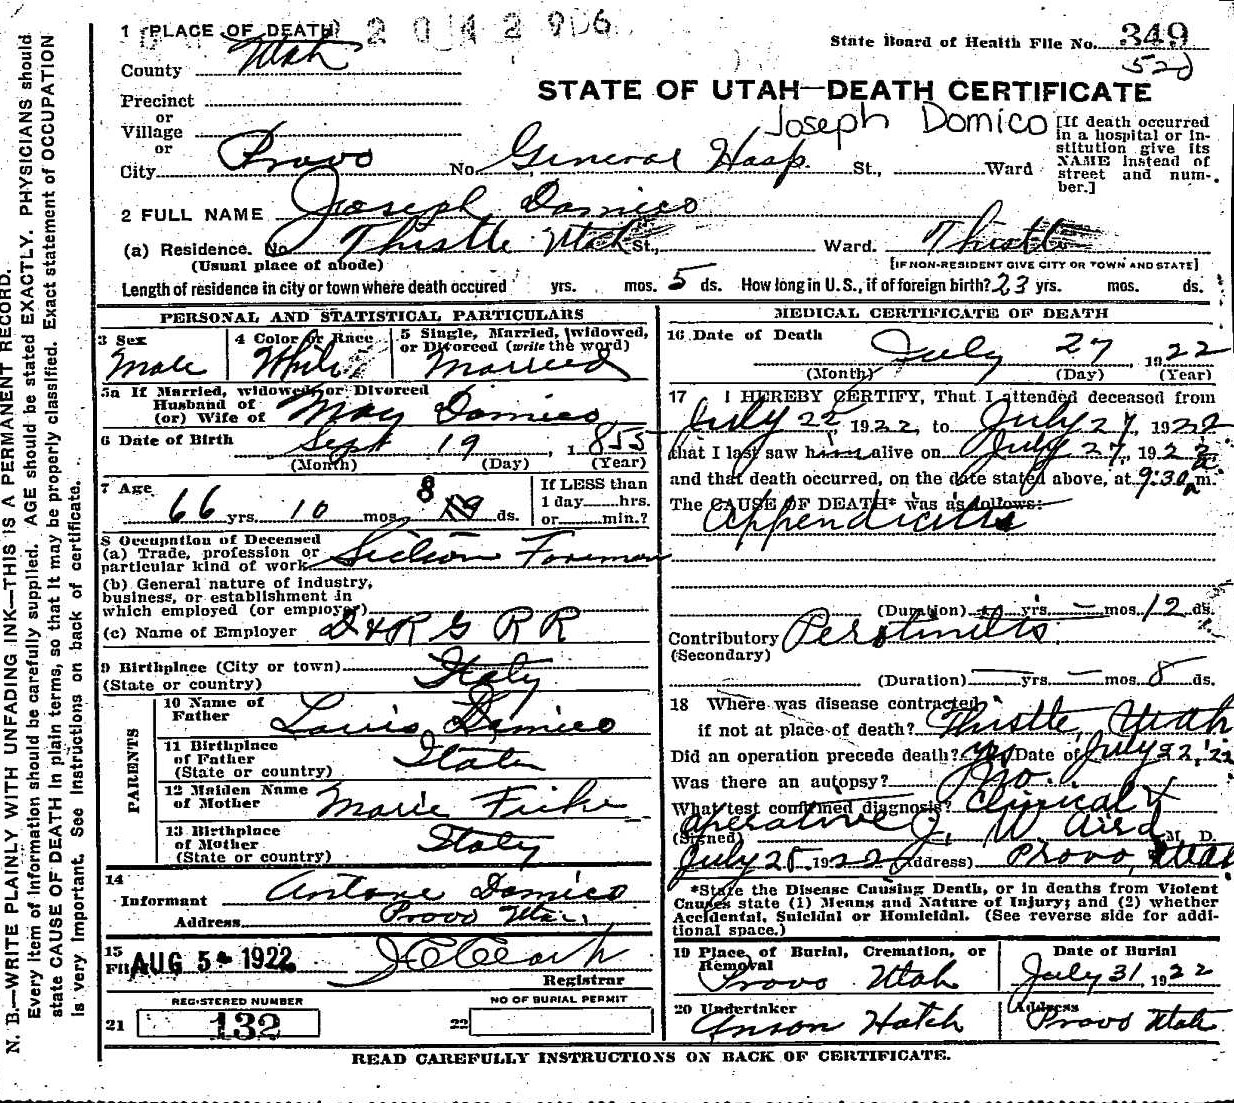 1 PLACE OF DEATH
2 0 4 2 906
State Board of Health File No. 349
52d
County Utah
STATE OF UTAH—DEATH CERTIFICATE
Precinct
or
Village
or
Joseph Domico
[If death occurred in a hospital or institution give its NAME instead of street and number.]
City Provo No. General Hosp. St., Ward
2 FULL NAME Joseph Domico
(a) Residence. No. Thistle Utah St., Ward. Thistle
(Usual place of abode) [IF NON-RESIDENT GIVE CITY OR TOWN AND STATE]
Length of residence in city or town where death occured yrs. mos. 5 ds. How long in U.S., if of foreign birth? 23 yrs. mos. ds.
PERSONAL AND STATISTICAL PARTICULARS
3 Sex Male
4 Color or Race White
5 Single, Married, Widowed, or Divorced (write the word) Married
5a If Married, widowed, or Divorced
Husband of
(or) Wife of May Domico
6 Date of Birth Sept 19, 1855
(Month) (Day) (Year)
7 Age 66 yrs. 10 mos. 8 ds.
If LESS than 1 day hrs. or min.?
8 Occupation of Deceased
(a) Trade, profession or
particular kind of work Section Foreman
(b) General nature of industry,
business, or establishment in
which employed (or employer)
(c) Name of Employer D & R G R R
9 Birthplace (City or town) Italy
(State or country)
PARENTS
10 Name of
Father Louis Domico
11 Birthplace
of Father Italy
(State or country)
12 Maiden Name
of Mother Marie
13 Birthplace
of Mother Italy
(State or country)
14
Informant Antone Domico
Address Provo Utah
15
Filed AUG 5 - 1922
Registrar
REGISTERED NUMBER
NO OF BURIAL PERMIT
21 132
22
MEDICAL CERTIFICATE OF DEATH
16 Date of Death July 27 1922
(Month) (Day) (Year)
17 I HEREBY CERTIFY, That I attended deceased from
July 22 1922, to July 27, 1922
that I last saw him alive on July 27, 1922
and that death occurred, on the date stated above, at 9:30 a m.
The CAUSE OF DEATH* was as follows:
Appendicitis
(Duration) yrs. — mos. 12 ds.
Contributory Peritonitis
(Secondary)
(Duration) — yrs. — mos. 8 ds.
18 Where was disease contracted
if not at place of death? Thistle, Utah
Did an operation precede death? Yes Date of July 22, '22
Was there an autopsy? No.
What test confirmed diagnosis? Clinical &
operative
(Signed) J. W. Aird M. D.
July 28, 1922 (Address) Provo, Utah
*State the Disease Causing Death, or in deaths from Violent
Causes state (1) Means and Nature of Injury; and (2) whether
Accidental, Suicidal or Homicidal. (See reverse side for addi-
tional space.)
19 Place of Burial, Cremation, or
Removal
Provo Utah
Date of Burial
July 31 1922
20 Undertaker
Anson Hatch
Address
Provo Utah
READ CAREFULLY INSTRUCTIONS ON BACK OF CERTIFICATE.
N. B.—WRITE PLAINLY WITH UNFADING INK—THIS IS A PERMANENT RECORD.
Every item of information should be carefully supplied. AGE should be stated EXACTLY. PHYSICIANS should
state CAUSE OF DEATH in plain terms, so that it may be properly classified. Exact statement of OCCUPATION
is very important. See instructions on back of certificate.